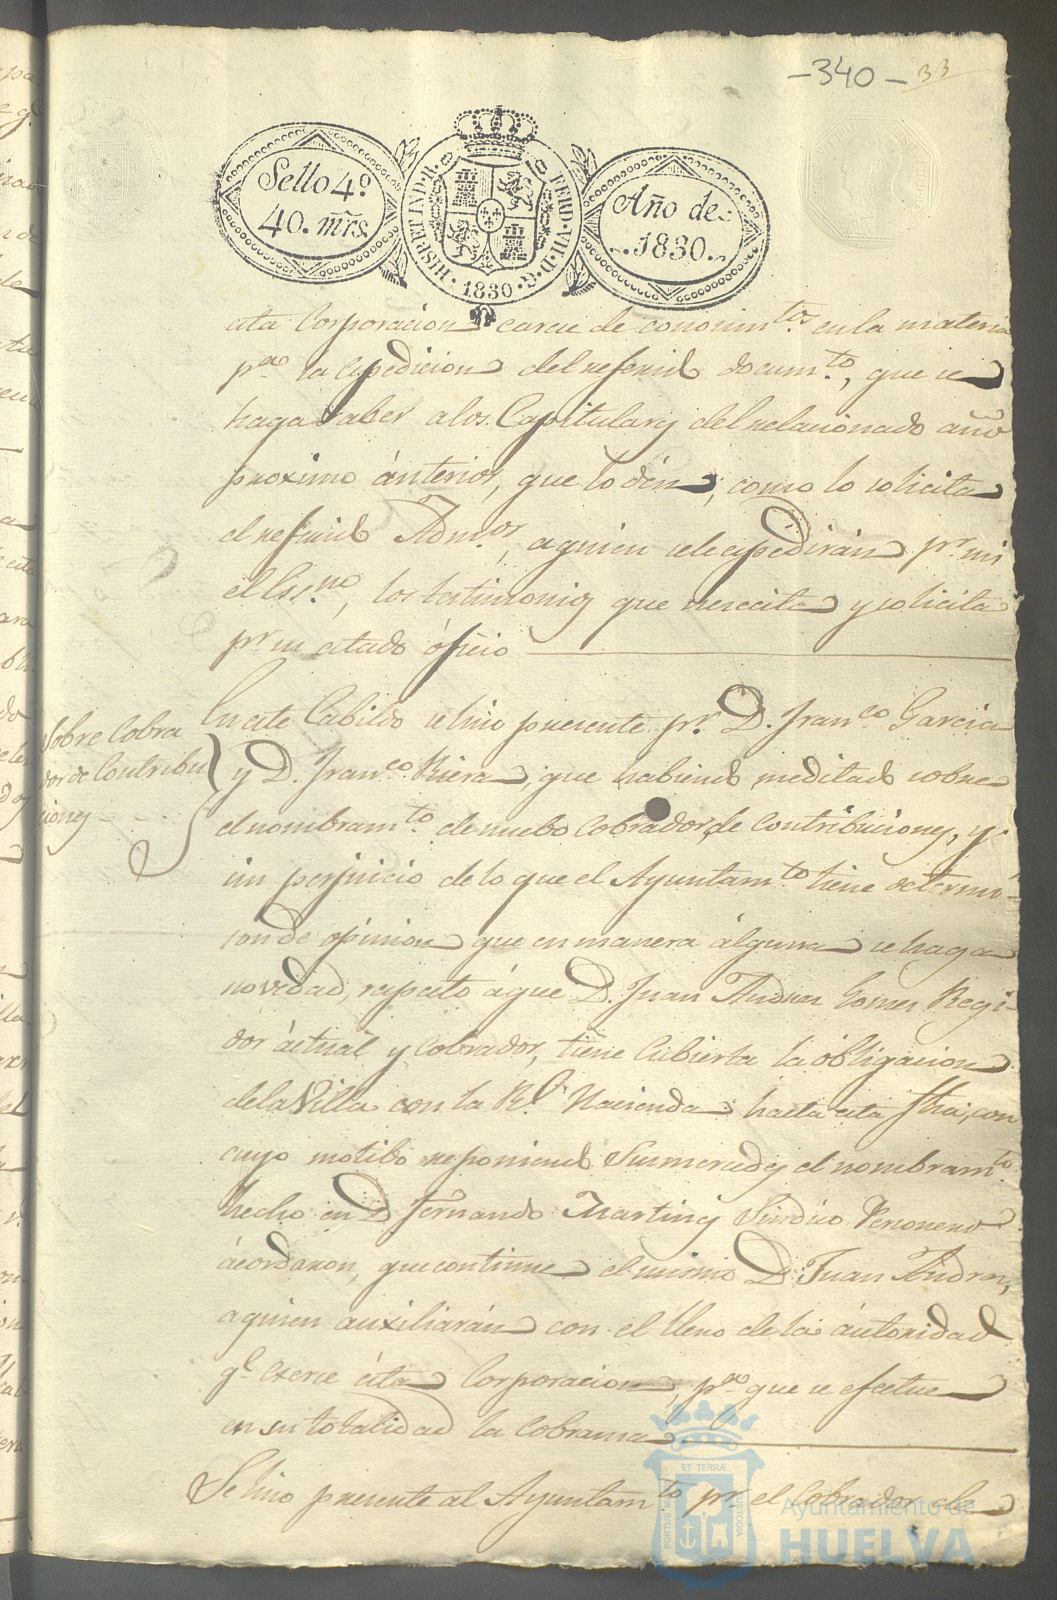 -340- 33
Sello 4.º
40. mrs.
HISP. ET IND. R. FERD. VII. D. G. 1830
Año de
1830.
esta Corporacion carece de conocim.tos en la materia
p.ra la espedicion del referido docum.to, que se
haga saber a los Capitulares del relacionado año
proximo ánterior, que lo dén, como lo solicita
el referido Adm.or, a quien se le espedirán p.r mi
el Ess.no, los testimonios que necesita y solicita
p.r su citado óficio
Sobre Cobra
dor de Contribu
ciones
En este Cabildo se hizo presente p.r D. Fran.co Garcia
y D. Fran.co Riera, que habiendo meditado sobre
el nombram.to de nuebo Cobrador de contribuciones, y
sin perjuicio de lo que el Ayuntam.to tiene determi-
son de opinion que en manera álguna se haga
novedad, respecto á que D. Juan Andres Gomez Regi-
dor áctual y cobrador, tiene cubierta la obligacion
de la Villa con la R.l Hacienda hasta esta fha, con
cuyo motibo reponiendo Sus mercedes el nombram.to
hecho en D. Fernando Martines Sindico Personero
ácordaron, que continue el mismo D. Juan Andres,
a quien auxiliarán con el lleno de la áutoridad
q.e exerce ésta Corporacion, p.a que se efectue
en su totalidad la cobranza
Se hizo presente al Ayuntam.to p.r el Cobrador de
PORTUS MARIS ET TERRÆ CUSTODIA
Ayuntamiento de
HUELVA